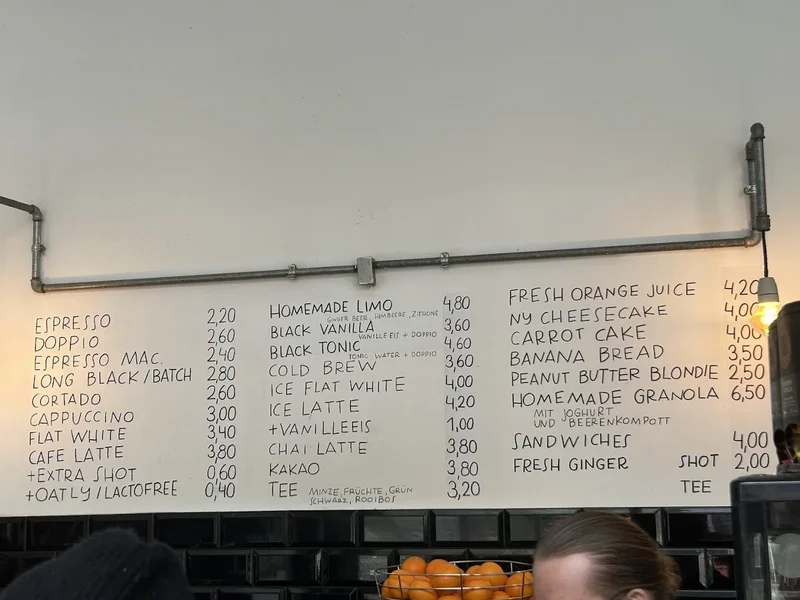 ESPRESSO 2,20
DOPPIO 2,60
ESPRESSO MAC. 2,40
LONG BLACK/BATCH 2,80
CORTADO 2,60
CAPPUCCINO 3,00
FLAT WHITE 3,40
CAFE LATTE 3,80
+EXTRA SHOT 0,60
+OATLY/LACTOFREE 0,40
HOMEMADE LIMO 4,80
GINGER BEER, HIMBEERE, ZITRONE
BLACK VANILLA 3,60
VANILLEEIS + DOPPIO
BLACK TONIC 4,60
TONIC WATER + DOPPIO
COLD BREW 3,60
ICE FLAT WHITE 4,00
ICE LATTE 4,20
+VANILLEEIS 1,00
CHAI LATTE 3,80
KAKAO 3,80
TEE MINZE, FRÜCHTE, GRÜN 3,20
SCHWARZ, ROOIBOS
FRESH ORANGE JUICE 4,20
NY CHEESECAKE 4,00
CARROT CAKE 4,00
BANANA BREAD 3,50
PEANUT BUTTER BLONDIE 2,50
HOMEMADE GRANOLA 6,50
MIT JOGHURT
UND BEERENKOMPOTT
SANDWICHES 4,00
FRESH GINGER SHOT 2,00
TEE